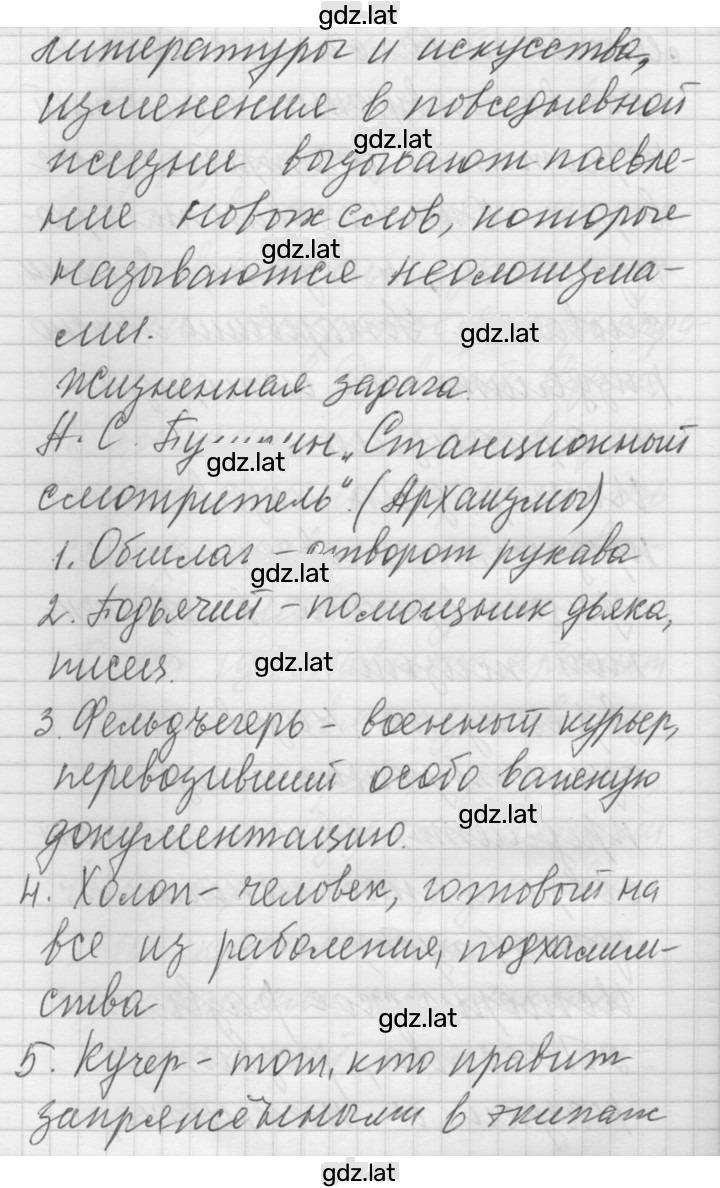 gdz.lat
литературы и искусства,
изменения в повседневной
gdz.lat
жизни вызывают появле-
ние новых слов, которые
gdz.lat
называются неологизма-
ми.
gdz.lat
Жизненная задача.
А. С. Пушкин „Станционный
gdz.lat
смотритель“. (Архаизмы)
1. Обшлаг – отворот рукава
gdz.lat
2. Подьячий – помощник дьяка,
писец.
gdz.lat
3. Фельдъегерь – военный курьер,
перевозивший особо важную
gdz.lat
документацию.
4. Холоп – человек, готовый на
все из раболепия, подхалим-
ства
gdz.lat
5. Кучер – тот, кто правит
запряжёнными в экипаж
gdz.lat